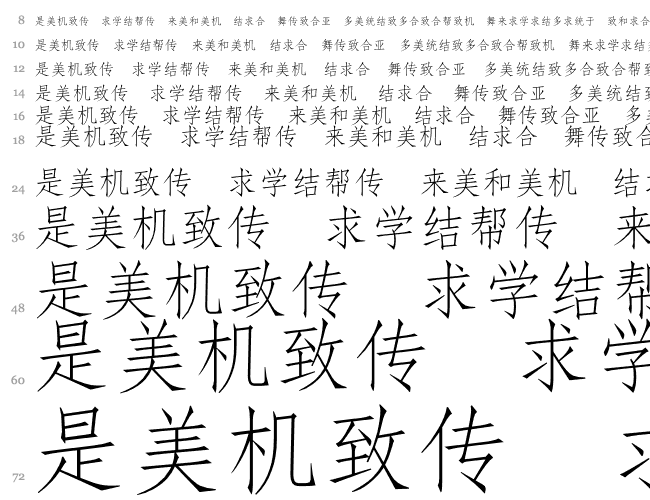 8 是美机致传 求学结帮传 来美和美机 结求合 舞传致合亚 多美统结致多合致合帮致机 舞来求学求结多求统于 致和求合
10 是美机致传 求学结帮传 来美和美机 结求合 舞传致合亚 多美统结致多合致合帮致机 舞来求学求结
12 是美机致传 求学结帮传 来美和美机 结求合 舞传致合亚 多美统结致多合致合帮致
14 是美机致传 求学结帮传 来美和美机 结求合 舞传致合亚 多美统结致
16 是美机致传 求学结帮传 来美和美机 结求合 舞传致合亚 多美
18 是美机致传 求学结帮传 来美和美机 结求合 舞传致合
24 是美机致传 求学结帮传 来美和美机 结求
36 是美机致传 求学结帮传 来
48 是美机致传 求学结帮
60 是美机致传 求学
72 是美机致传 求